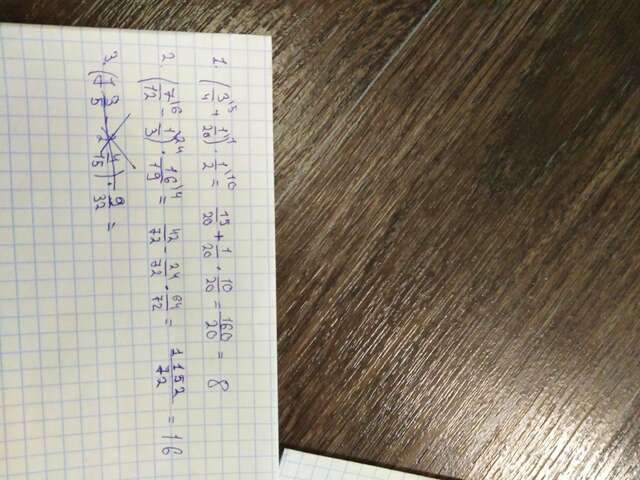 1. (3/4\5 + 1/20\1) · 1/2\10 = 15/20 + 1/20 · 10/20 = 160/20 = 8
2. (7/12\6 - 1/3\24) · 16/19\4 = 42/72 - 24/72 · 64/72 = 1152/72 = 16
3. (1 3/5 - 2 4/15) · 9/32 =